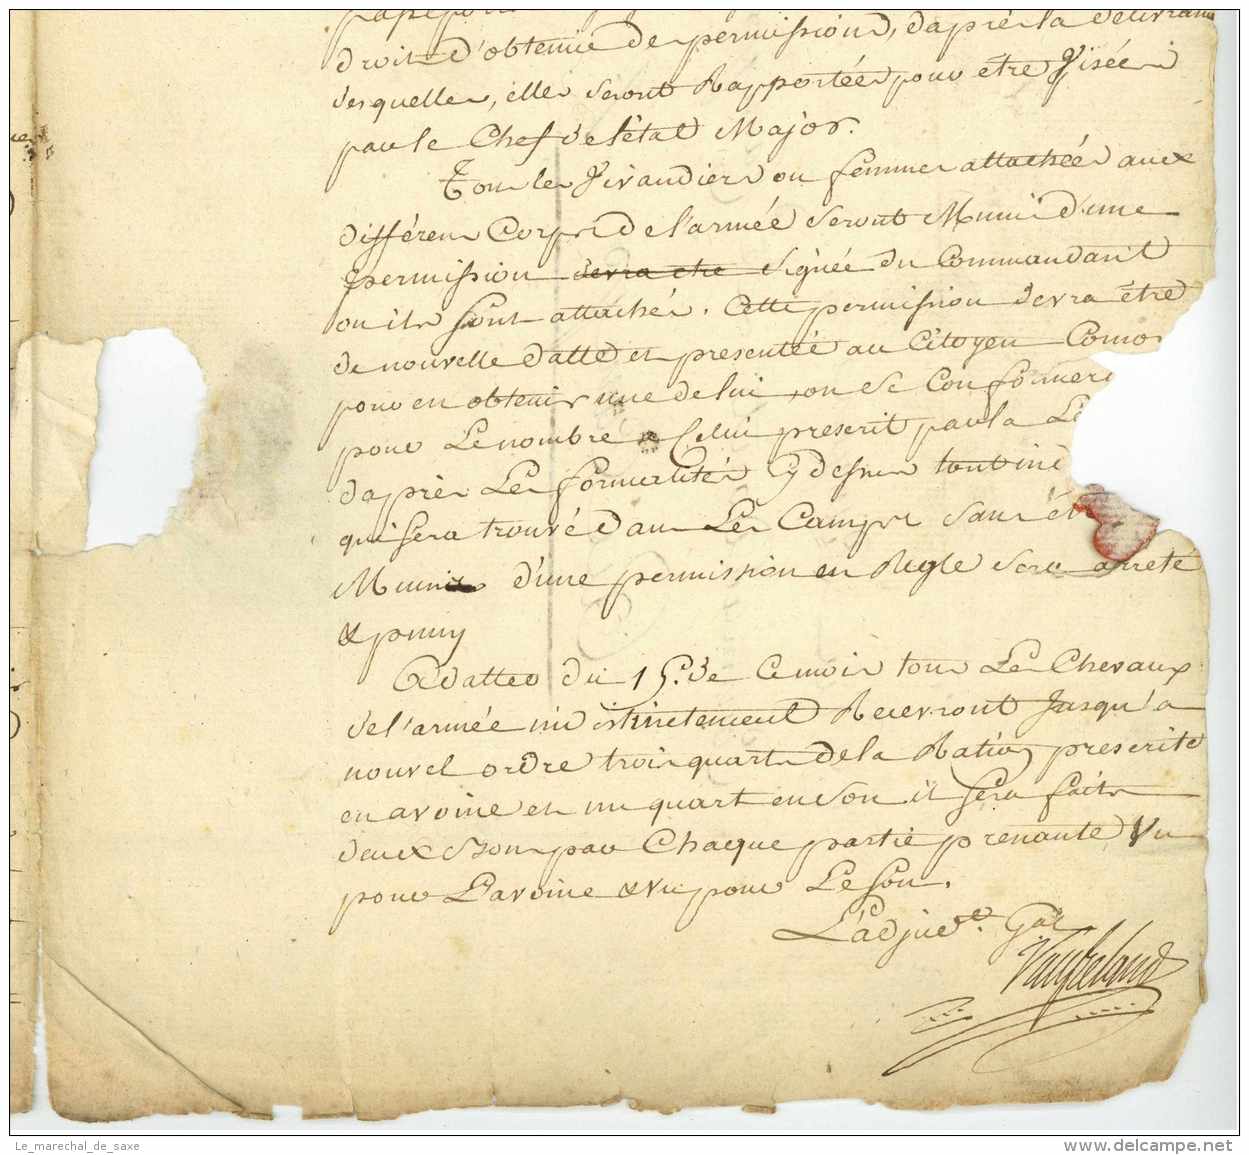 droit d'obtenir de permission, daprès la délivran
desquelles, elles seront Rapportées pour etre Visées
par le Chef de létat Major.
Tous les Vivandiers ou femmes attachées aux
différens Corps de l'armée seront Muni d'une
permission devra etre signée du Commandant
ou ils sont attachés. Cette permission devra être
de nouvelle datte et presentée au Citoyen Comm
pour en obtenir une de lui, on se Conformera
pour Le nombre a Celui prescrit par la L
daprès Les formalités Cy dessus tout ind
qui sera trouvé dans Les Camps sans êt
Munis d'une permission en Regle sera arreté
& puny
A datter du 15. de Ce mois tous Les Chevaux
de l'armée indistinctement Recevront Jusqu'a
nouvel ordre trois quarts de la Ration prescrite
en avoine et un quart en son il sera fait
deux Bons par Chaque partie prenante, Un
pour L'avoine & un pour Le son.
L'adjud.t Gal
Le_marechal_de_saxe
www.delcampe.net